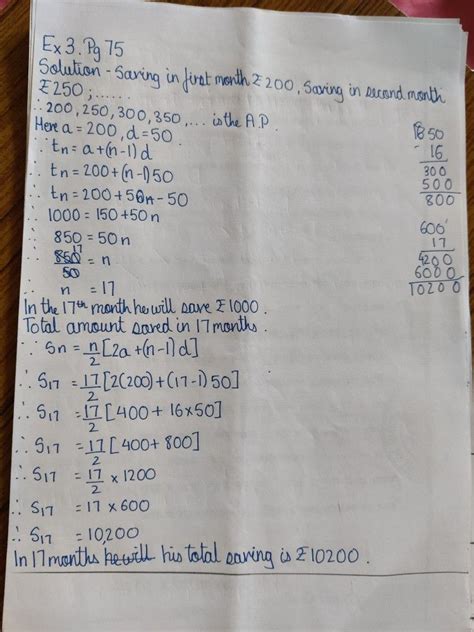 Ex 3. Pg 75
Solution - Saving in first month ₹ 200, Saving in second month
₹ 250 ; ......
∴ 200, 250, 300, 350, ... is the A.P.
Here a = 200, d = 50
∵ tn = a + (n-1) d
∴ tn = 200 + (n-1) 50
∴ tn = 200 + 50n - 50
∴ 1000 = 150 + 50 n
∴ 850 = 50 n
∴ 850 17 = n
50
∴ n = 17
In the 17th month he will save ₹ 1000.
Total amount saved in 17 months.
∵ Sn = n/2 [2a + (n-1) d]
∴ S17 = 17/2 [2(200) + (17-1) 50]
∴ S17 = 17/2 [400 + 16 × 50]
∴ S17 = 17/2 [400 + 800]
∴ S17 = 17/2 × 1200
∴ S17 = 17 × 600
∴ S17 = 10,200
In 17 months he will his total saving is ₹ 10200.
50
16
300
500
800
600
17
4200
6000
10200